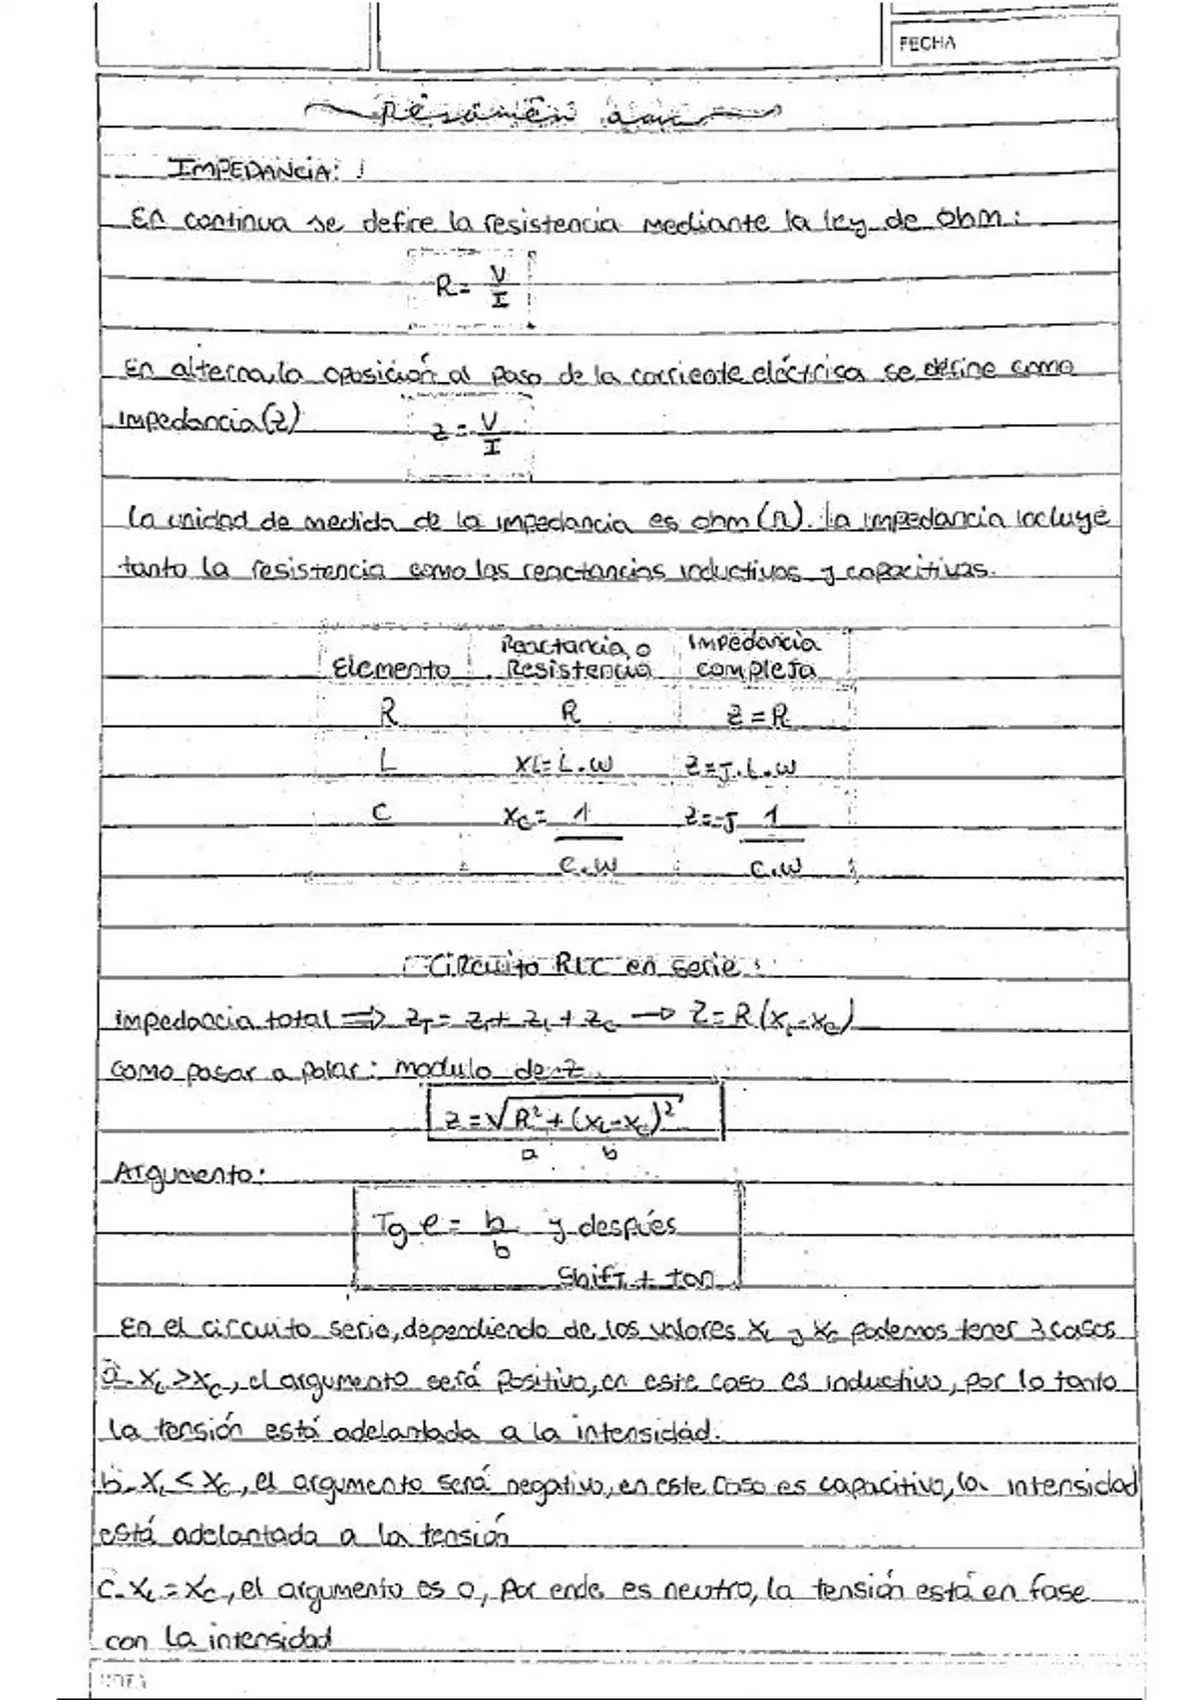 FECHA
Resumen
IMPEDANCIA:
En continua se define la resistencia mediante la ley de Ohm:
R = V/I
En alterna, la oposición al paso de la corriente eléctrica se define como
impedancia (Z)
Z = V/I
La unidad de medida de la impedancia es ohm (Ω). La impedancia incluye
tanto la resistencia como las reactancias inductivas y capacitivas.
Elemento Reactancia o Resistencia Impedancia compleja
R R Z = R
L XL = L.w Z = J.L.w
C Xc = 1/C.w Z = -J 1/C.w
Circuito RLC en serie:
impedancia total => ZT = Zr + ZL + Zc → Z = R(XL-Xc)
Como pasar a polar: modulo de Z
Z = √R² + (XL-Xc)²
a b
Argumento:
Tg e = b/b y después
Shift + tan
En el circuito serie, dependiendo de los valores XL y Xc podemos tener 3 casos
a- XL > Xc, el argumento será positivo, en este caso es inductivo, por lo tanto
la tensión está adelantada a la intensidad.
b- XL < Xc, el argumento será negativo, en este caso es capacitivo, la intensidad
está adelantada a la tensión
c- XL = Xc, el argumento es 0, por ende es neutro, la tensión está en fase
con la intensidad